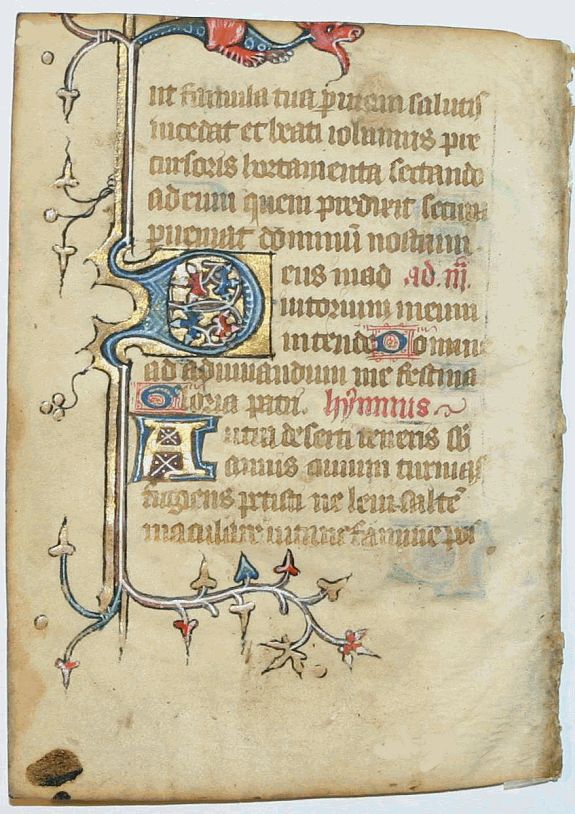 ut familia tua p uiam salutis
incedat et beati iohannis pre
cursoris hortamenta sectando
ad eum quem predixit secura
perueniat dominū nostrum.
Deus in ad ad m̄.
iutorium meum
intende Domine
ad adiuuandum me festina
Gloria patri. hymnus
Antra deserti teneris sb
annis ciuium turmas
fugiens petisti ne leui saltē
maculare uitam famine pos